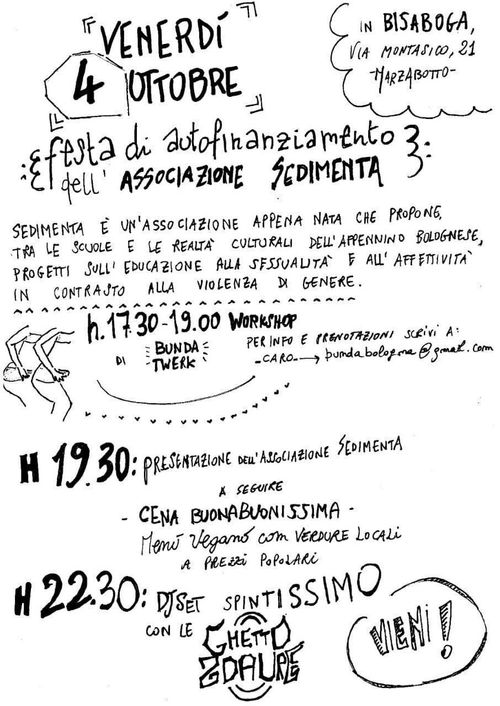 VENERDÍ
4 OTTOBRE
IN BISABOGA,
VIA MONTASICO, 21
-MARZABOTTO-
festa di autofinanziamento
dell' ASSOCIAZIONE SEDIMENTA
SEDIMENTA È UN'ASSOCIAZIONE APPENA NATA CHE PROPONE,
TRA LE SCUOLE E LE REALTÀ CULTURALI DELL'APPENNINO BOLOGNESE,
PROGETTI SULL'EDUCAZIONE ALLA SESSUALITÀ E ALL'AFFETTIVITÀ
IN CONTRASTO ALLA VIOLENZA DI GENERE.
h.17.30-19.00 WORKSHOP
DI BUNDA
TWERK
PER INFO E PRENOTAZIONI SCRIVI A:
-CARO-→ bundabologna@gmail.com
H 19.30: PRESENTAZIONE DELL'ASSOCIAZIONE SEDIMENTA
A SEGUIRE
- CENA BUONABUONISSIMA -
Menù Vegano con VERDURE LOCALI
A PREZZI POPOLARI
H 22.30: DJSET SPINTISSIMO
CON LE GHETTO
ZDAURE
VIENI!